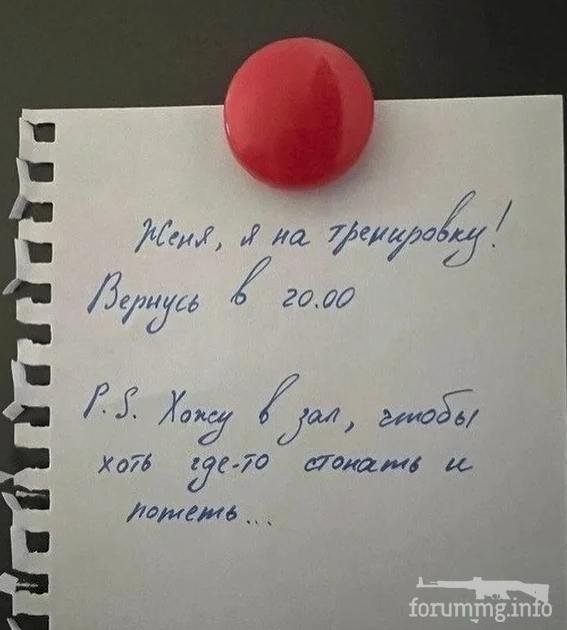 Женя, я на тренировку!
Вернусь в 20.00
P.S. Хожу в зал, чтобы
хоть где-то стонать и
потеть...
forummg.info